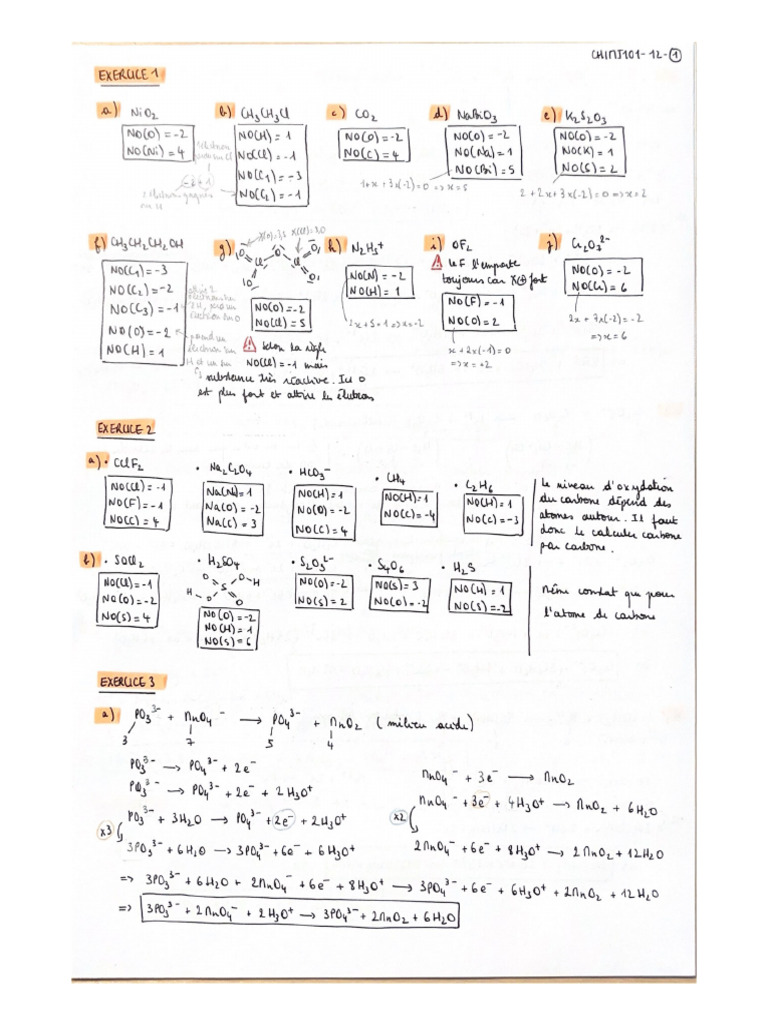 CHIMI101-12-①
EXERCICE 1
a) NiO2
NO(O) = -2
NO(Ni) = 4
b) CH3CH3Cl
NO(H) = 1
NO(Cl) = -1
NO(C1) = -3
NO(C2) = -1
c) CO2
NO(O) = -2
NO(C) = 4
d) NaBiO3
NO(O) = -2
NO(Na) = 1
NO(Bi) = 5
1+x+3x(-2)=0 => x=5
e) K2S2O3
NO(O) = -2
NO(K) = 1
NO(S) = 2
2+2x+3x(-2)=0 => x=2
f) CH3CH2CH2OH
NO(C1) = -3
NO(C2) = -2
NO(C3) = -1
NO(O) = -2
NO(H) = 1
g) X(O)=3,5 X(Cl)=3,0
O Cl O Cl O
O O
NO(O) = -2
NO(Cl) = 5
⚠ selon la règle
NO(Cl) = -1 mais
substance très réactive. Ici O
est plus fort et attire les électrons
h) N2H5+
NO(N) = -2
NO(H) = 1
2x+5=1 => x=-2
i) OF2
⚠ Le F l'emporte
toujours car X(+) fort
NO(F) = -1
NO(O) = 2
x+2x(-1)=0
=> x=+2
j) Cr2O3 2-
NO(O) = -2
NO(Cr) = 6
2x+7x(-2)=-2
=> x=6
EXERCICE 2
a) • CClF2
NO(Cl) = -1
NO(F) = -1
NO(C) = 4
• Na2C2O4
Na(Na) = 1
Na(O) = -2
Na(C) = 3
• HCO3-
NO(H) = 1
NO(O) = -2
NO(C) = 4
• CH4
NO(H) = 1
NO(C) = -4
• C2H6
NO(H) = 1
NO(C) = -3
Le niveau d'oxydation
du carbone dépend des
atomes autour. Il faut
donc le calculer carbone
par carbone.
b) • SOCl2
NO(Cl) = -1
NO(O) = -2
NO(S) = 4
• H2SO4
O O-H
S
H-O O
NO(O) = -2
NO(H) = 1
NO(S) = 6
• S2O3 2-
NO(O) = -2
NO(S) = 2
• S4O6
NO(S) = 3
NO(O) = -2
• H2S
NO(H) = 1
NO(S) = -2
Même constat que pour
l'atome de carbone
EXERCICE 3
a) PO3 3- + MnO4 - → PO4 3- + MnO2 (milieu acide)
3 7 5 4
PO3 3- → PO4 3- + 2e-
PO3 3- → PO4 3- + 2e- + 2H3O+
x3 PO3 3- + 3H2O → PO4 3- + 2e- + 2H3O+
3PO3 3- + 6H2O → 3PO4 3- + 6e- + 6H3O+
MnO4 - + 3e- → MnO2
x2 MnO4 - + 3e- + 4H3O+ → MnO2 + 6H2O
2MnO4 - + 6e- + 8H3O+ → 2MnO2 + 12H2O
=> 3PO3 3- + 6H2O + 2MnO4 - + 6e- + 8H3O+ → 3PO4 3- + 6e- + 6H3O+ + 2MnO2 + 12H2O
=> 3PO3 3- + 2MnO4 - + 2H3O+ → 3PO4 3- + 2MnO2 + 6H2O